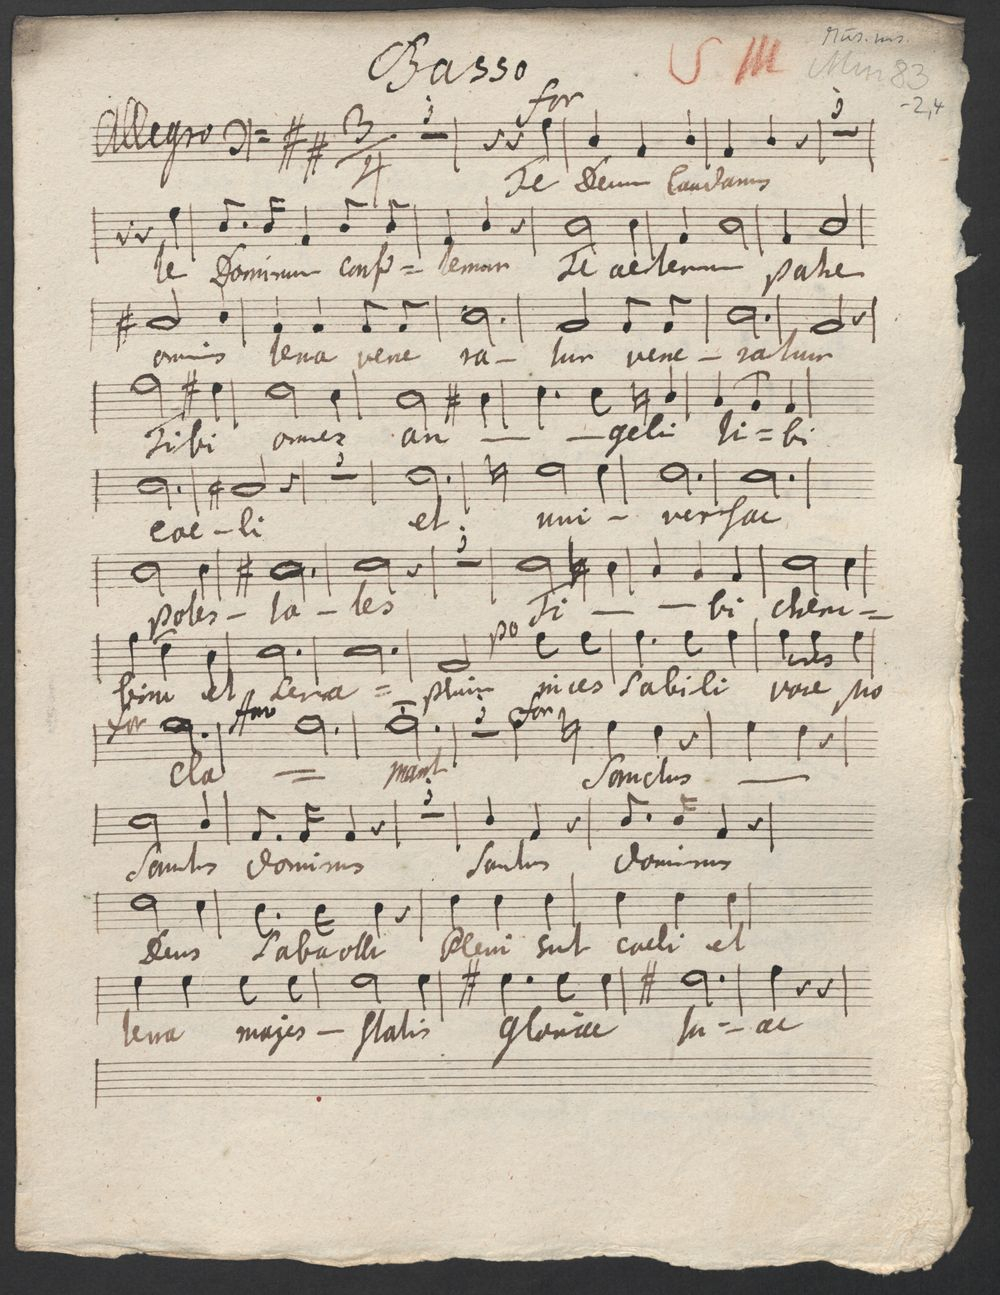 Basso
Mus. ms.
Mm 83
-2,4
Allegro 3/4 3 for 3
Te Deum laudamus
te Dominum confi = temur Te aeternum patrem
omnis terra vene ra - tur vene - ratur
Tibi omnes an - - geli ti = bi
3
coe - li et uni - versae
3
potes - ta - tes Ti - - bi cheru =
po
bim et Sera = phim inces sabili voce pro
for 3 for
cla = mant Sanctus
3
Sanctus Dominus Sanctus Dominus
Deus Sabaoth Pleni sunt coeli et
terra majes - statis gloriae tu = ae